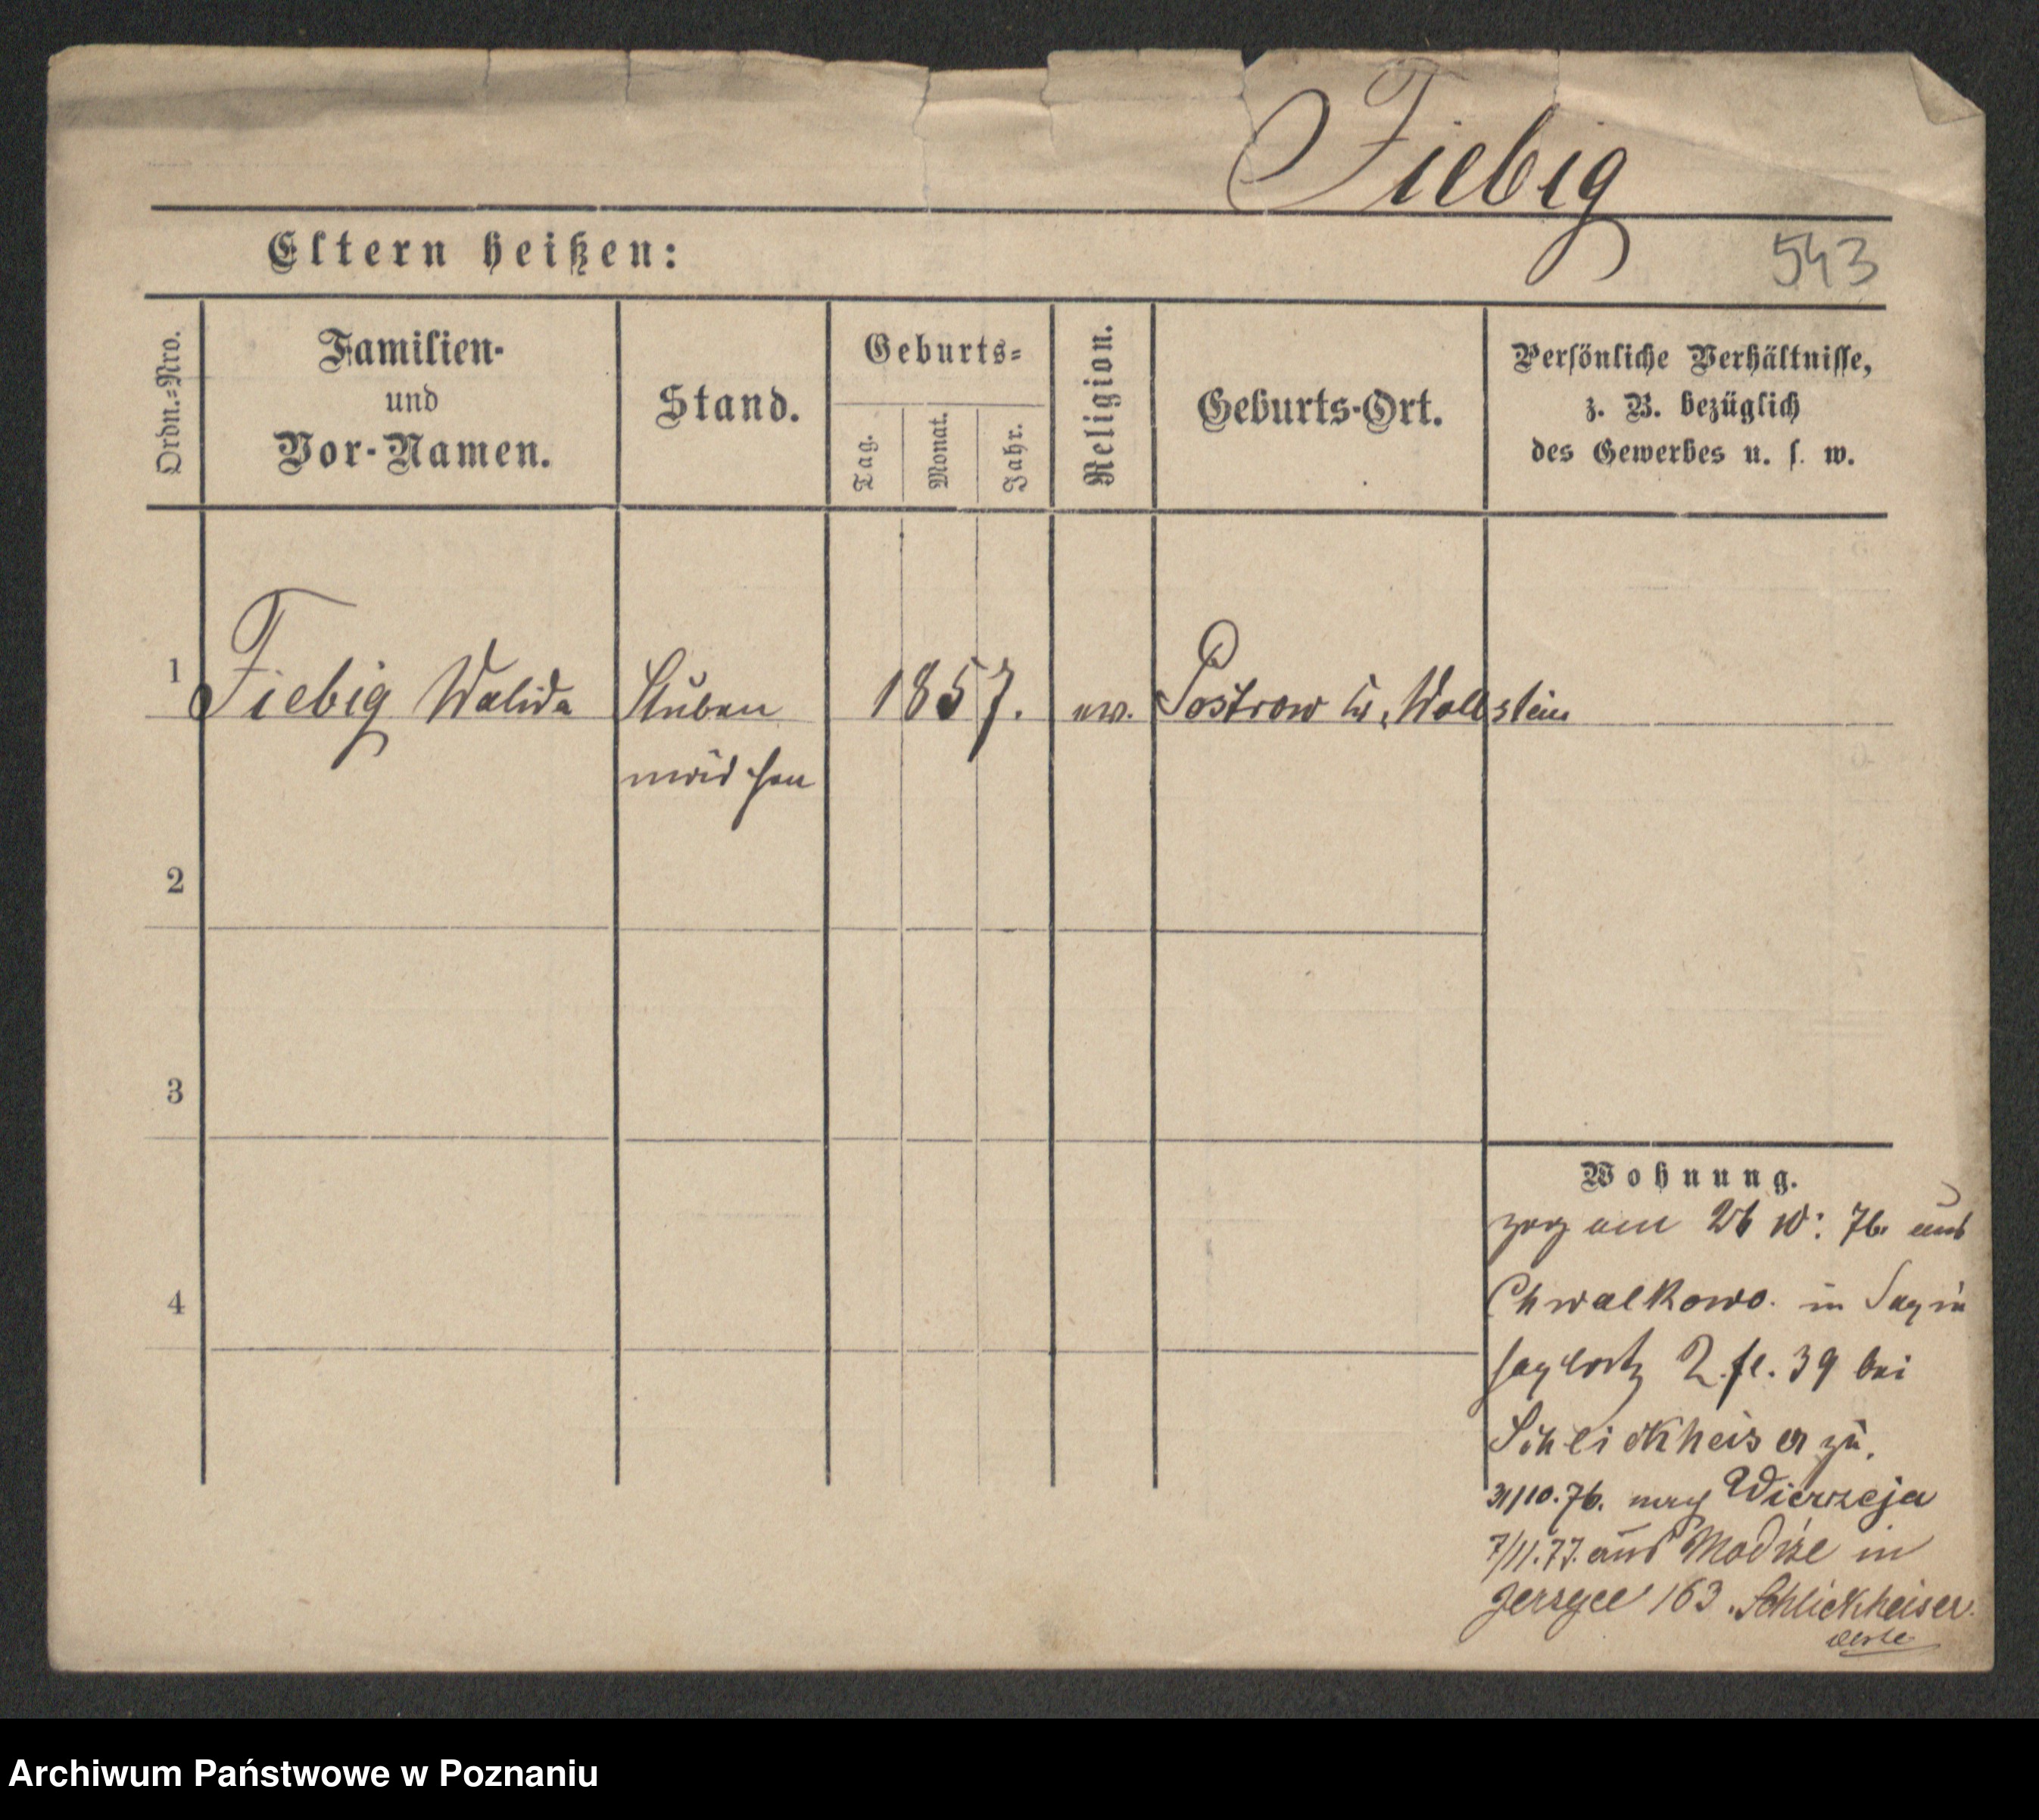 Fiebig
543
Eltern heißen:
Ordn.-Nro.
Familien-
und
Vor-Namen.
Stand.
Geburts-
Tag.
Monat.
Jahr.
Religion.
Geburts-Ort.
Persönliche Verhältnisse,
z. B. bezüglich
des Gewerbes u. s. w.
1 Fiebig Walida Stuben 1857. ev. Postrow Kr. Wollstein
mädchen
2
3
4
Wohnung.
zog am 26 10: 76. aus
Chwalkowo. in
39 bei
Schlickheiser zu.
31/10.76. nach Wierzeja
7/11.77. aus Modrze in
Jersyce 163. Schlickheiser.
Archiwum Państwowe w Poznaniu